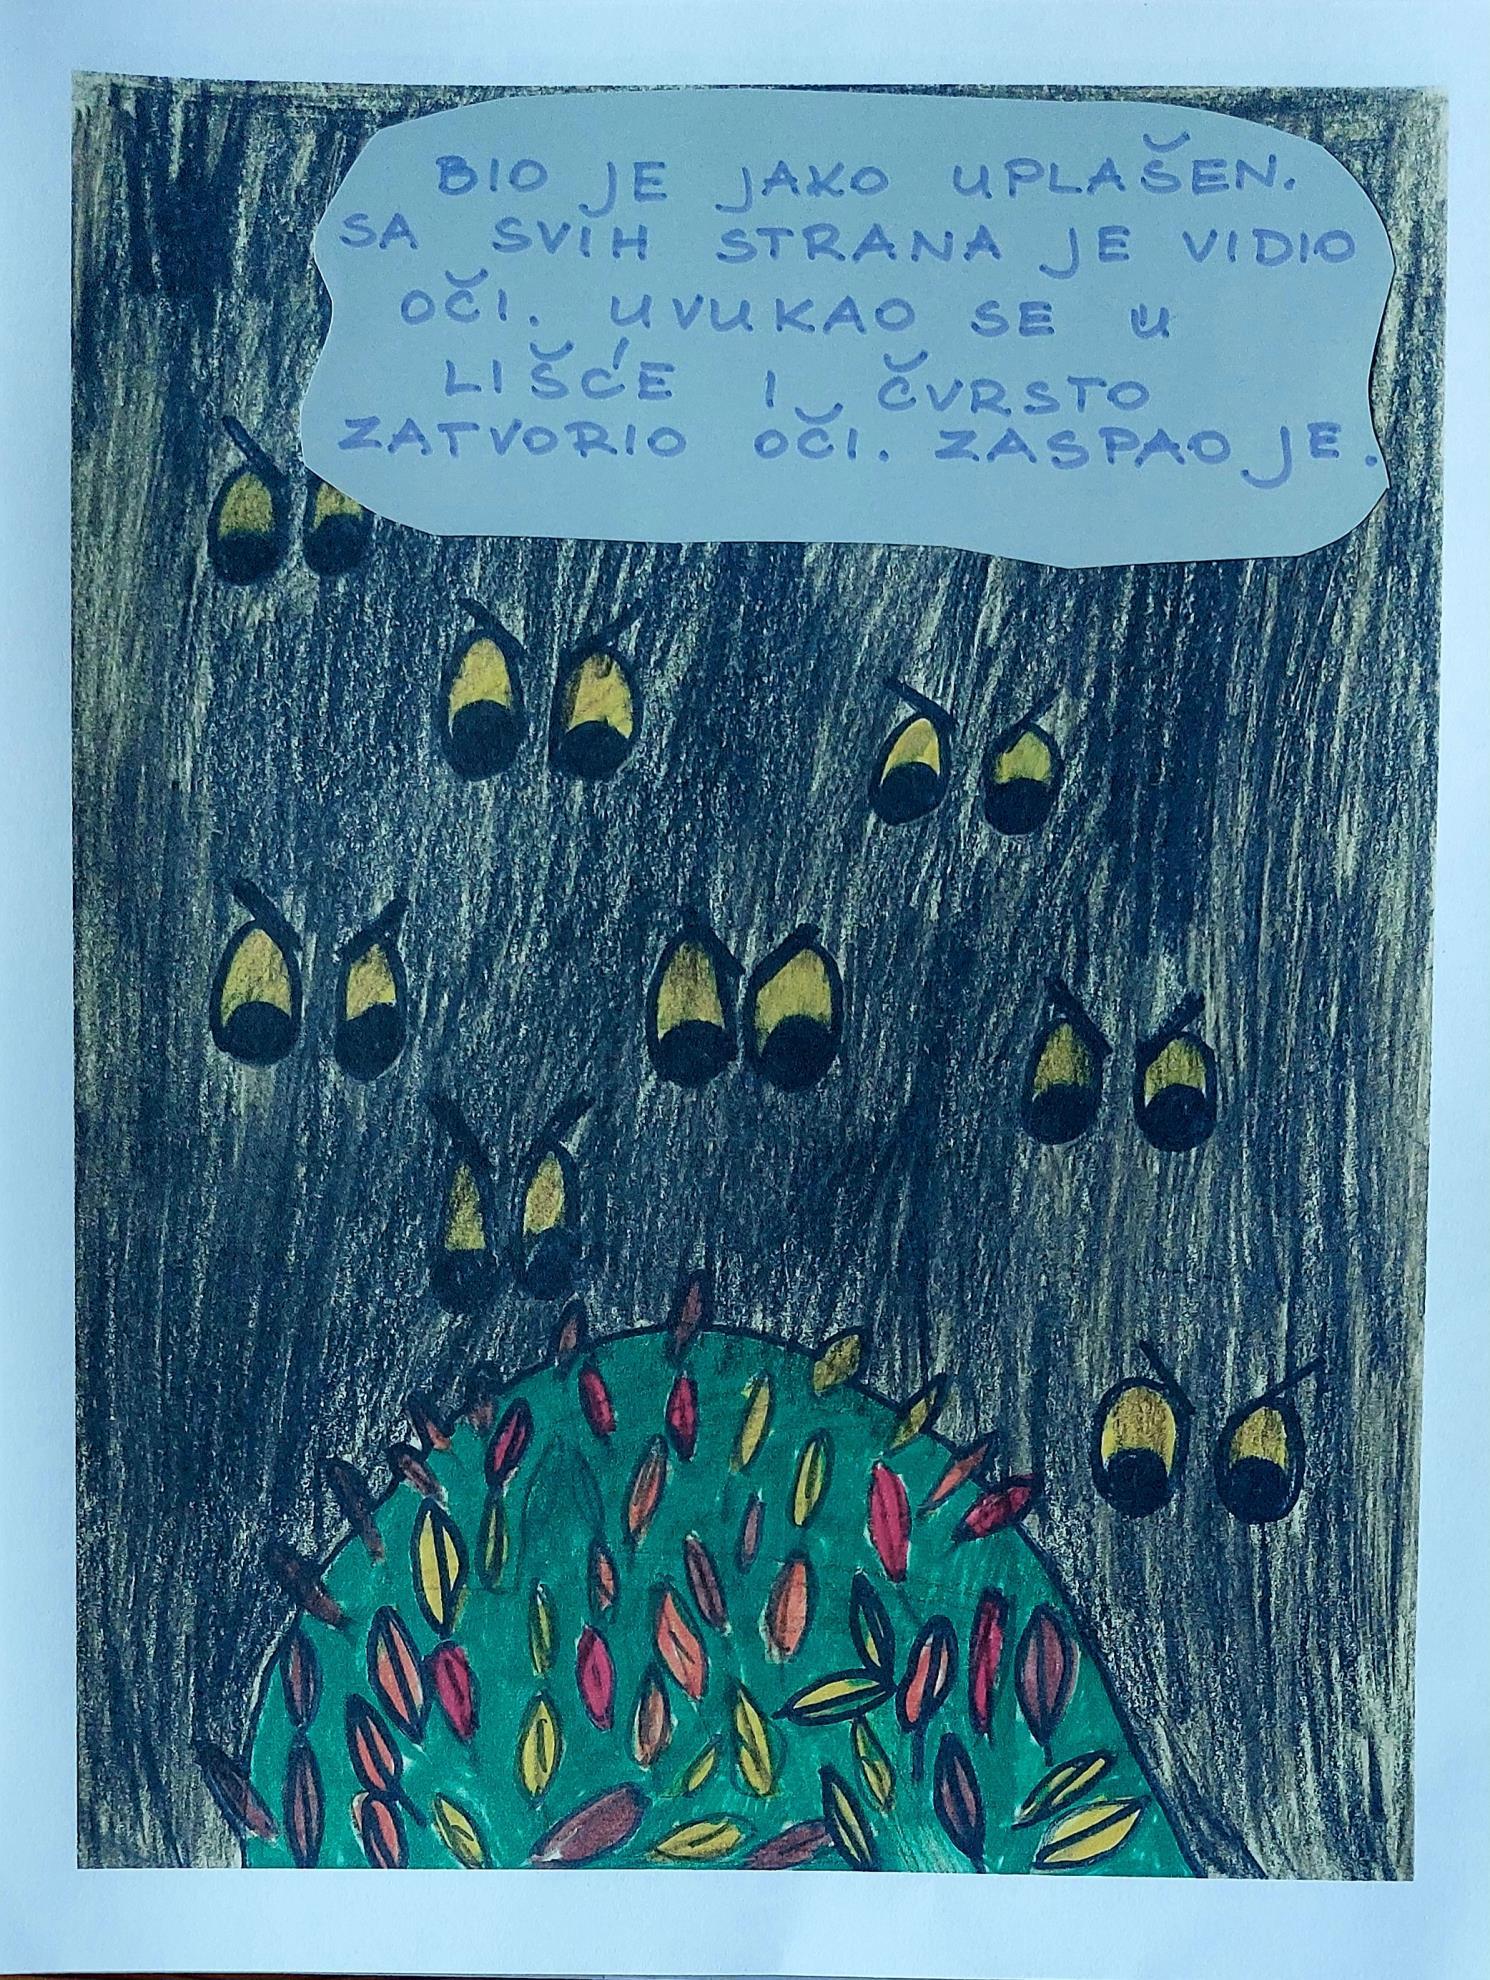 BIO JE JAKO UPLAŠEN.
SA SVIH STRANA JE VIDIO
OČI. UVUKAO SE U
LIŠĆE I ČVRSTO
ZATVORIO OČI. ZASPAO JE.